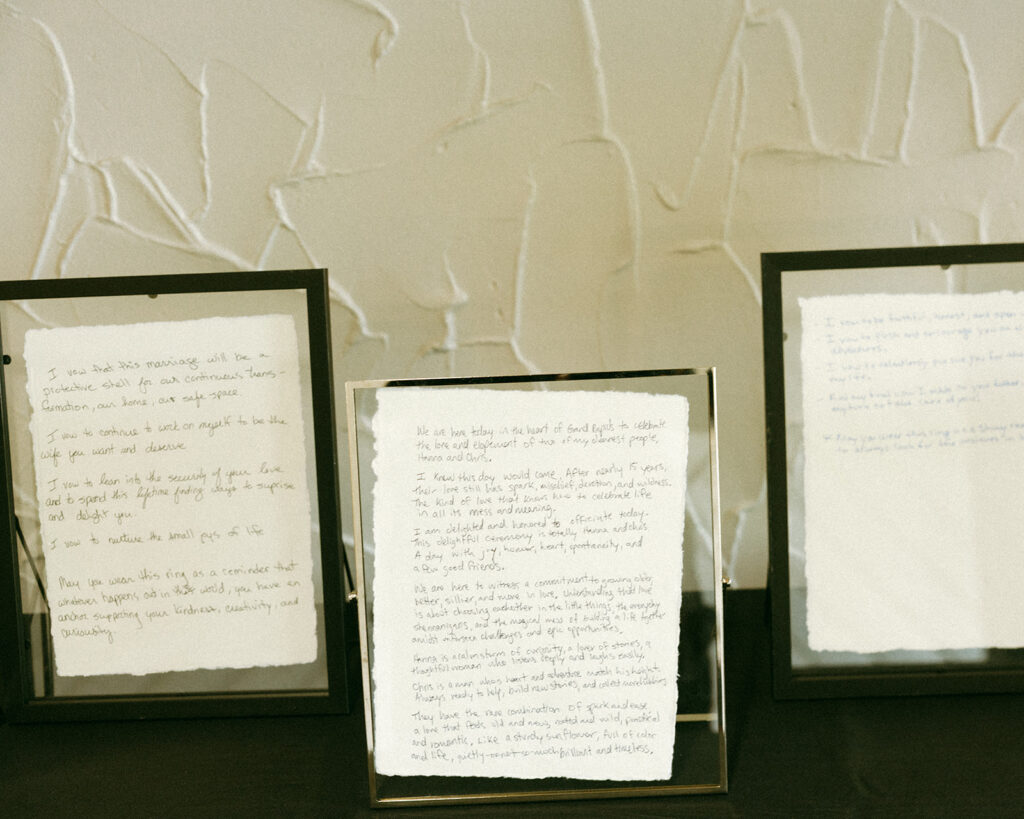 I vow that this marriage will be a
protective shell for our continuous trans-
formation, our home, our safe space.
I vow to continue to work on myself to be the
wife you want and deserve
I vow to lean into the security of your love
and to spend this lifetime finding ways to surprise
and delight you.
I vow to nurture the small joys of life
May you wear this ring as a reminder that
whatever happens out in the world, you have an
anchor supporting your kindness, creativity, and
curiousity.
We are here today in the heart of Grand Rapids to celebrate
the love and elopement of two of my dearest people,
Hanna and Chris.
I knew this day would come. After nearly 15 years,
their love still has spark, mischief, devotion, and wildness.
The kind of love that knows how to celebrate life
in all its mess and meaning.
I am delighted and honored to officiate today.
This delightful ceremony is totally Hanna and Chris.
A day with joy, humor, heart, spontaneity, and
a few good friends.
We are here to witness a commitment to growing older,
better, sillier, and more in love. Understanding that love
is about choosing eachother in the little things, the everyday
shenanigans, and the magical mess of building a life together
amidst challenges and epic opportunities.
Hanna is a calm storm of curiosity, a lover of stories, a
thoughtful woman who listens deeply and laughs easily.
Chris is a man whos heart and adventure match his height.
Always ready to help, build new stories, and collect
They have the rare combination of spark and ease
a love that feels old and new, rooted and wild, practical
and romantic. Like a sturdy sunflower, full of color
and life, quietly or not so much brilliant and timeless.
- I vow to be faithful, honest, and open
adventures.